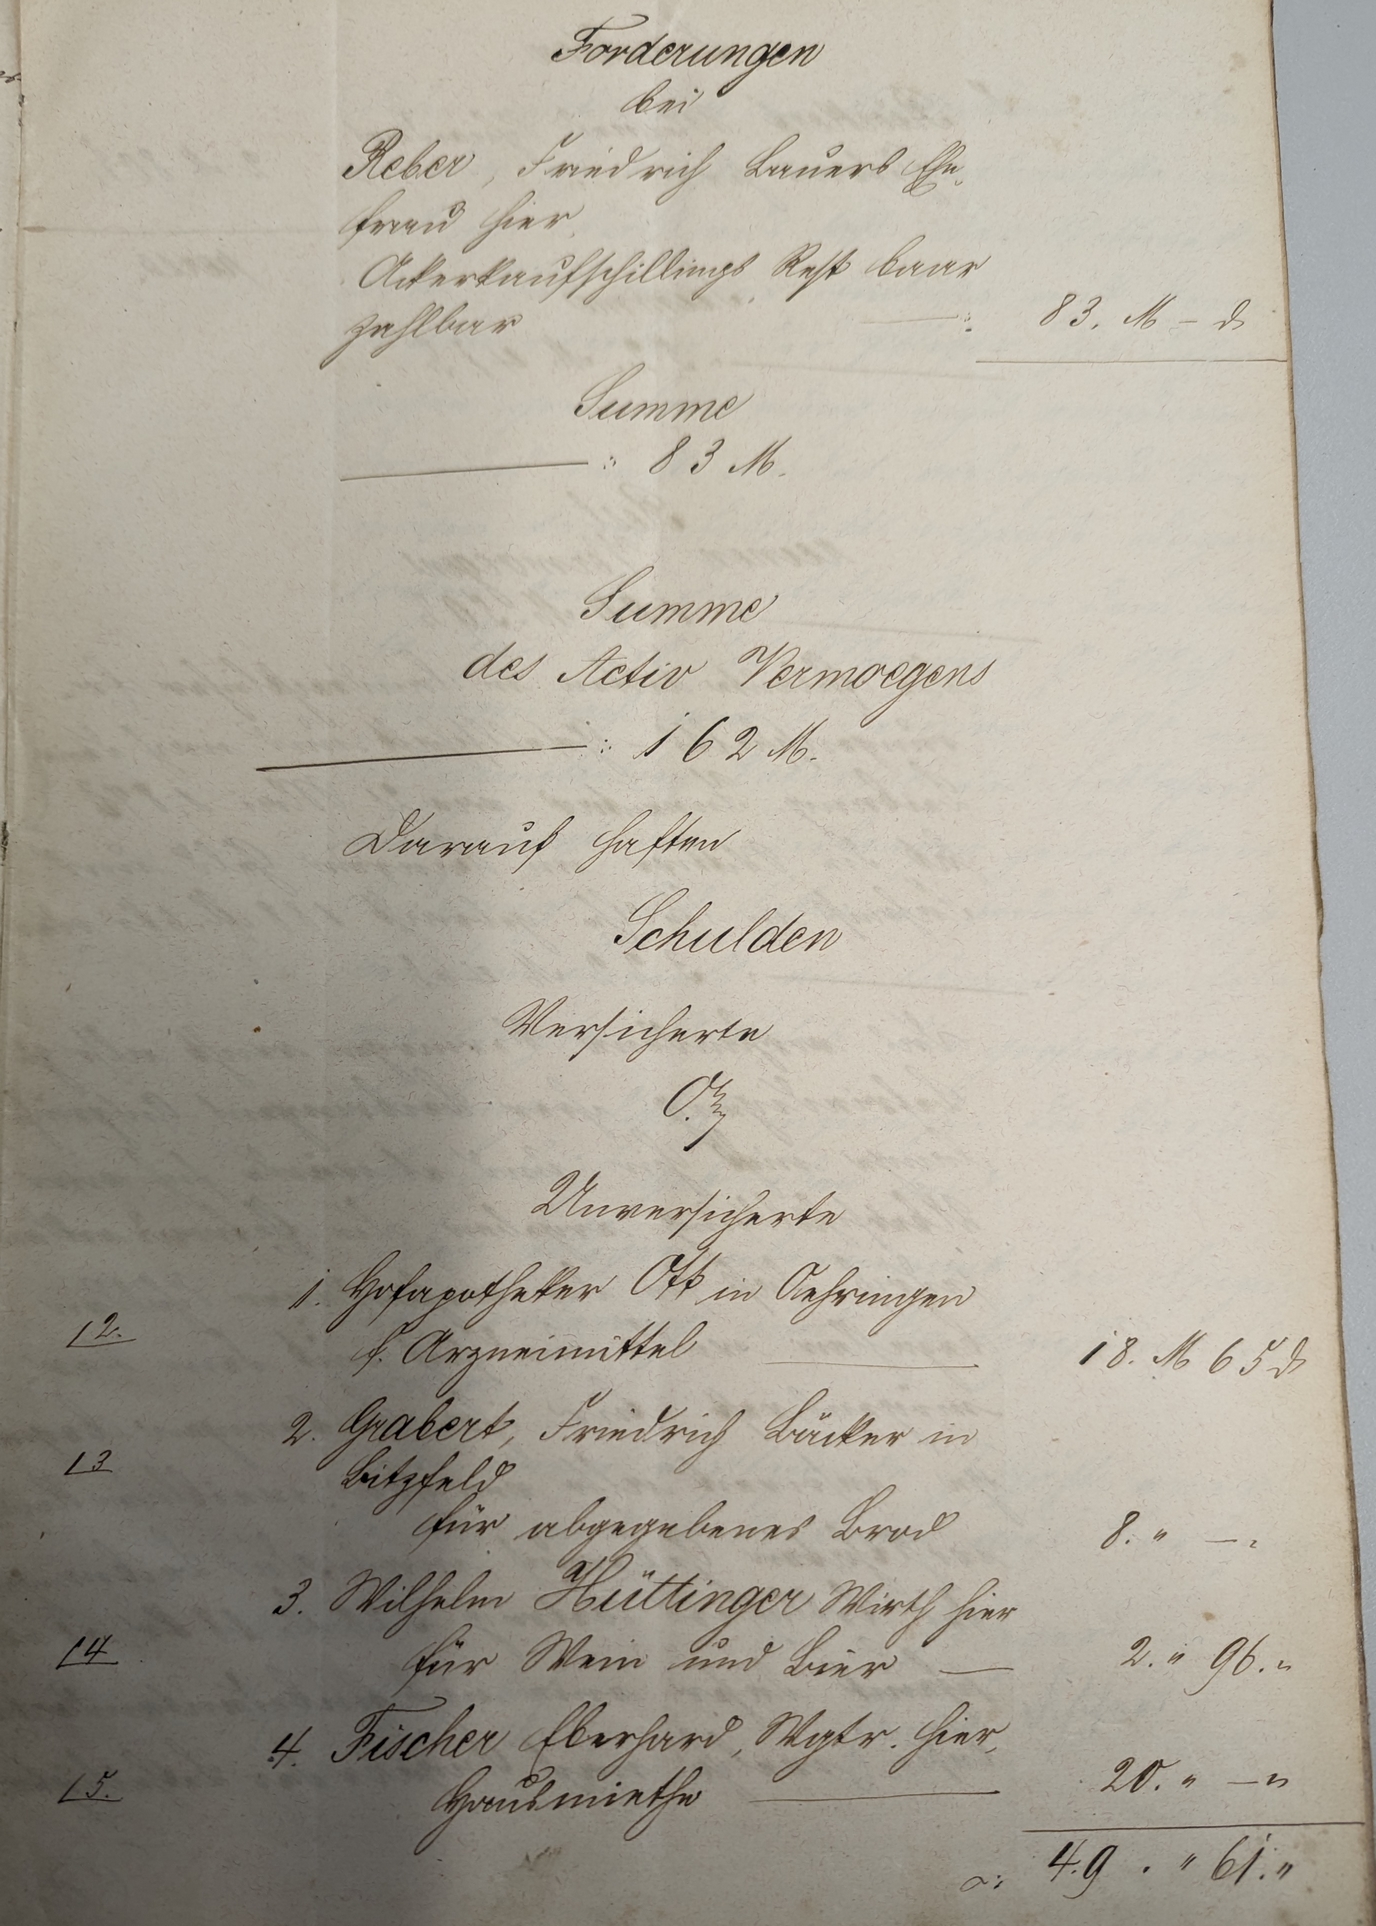 Forderungen
bei
Reber, Friedrich Bauers Ehe-
frau hier,
Ackerkaufschillings Rest baar
zahlbar —: 83. M – d
Summe
—: 83 M.
Summe
des Activ Vermoegens
—: 162 M.
Darauf haften
Schulden
Versicherte
0.
Unversicherte
1. Hofapotheker Ott in Oehringen
12. f. Arzneimittel — 18. M 65 d
2. Grabert, Friedrich Bäcker in
13 Bitzfeld
für abgegebenes Brod 8. " — "
3. Wilhelm Hüttinger Wirth hier
14 für Wein und Bier — 2. " 96. "
4. Fischer Eberhard, Wgtr. hier,
15. Hausmiethe — 20. " — "
49. " 61. "